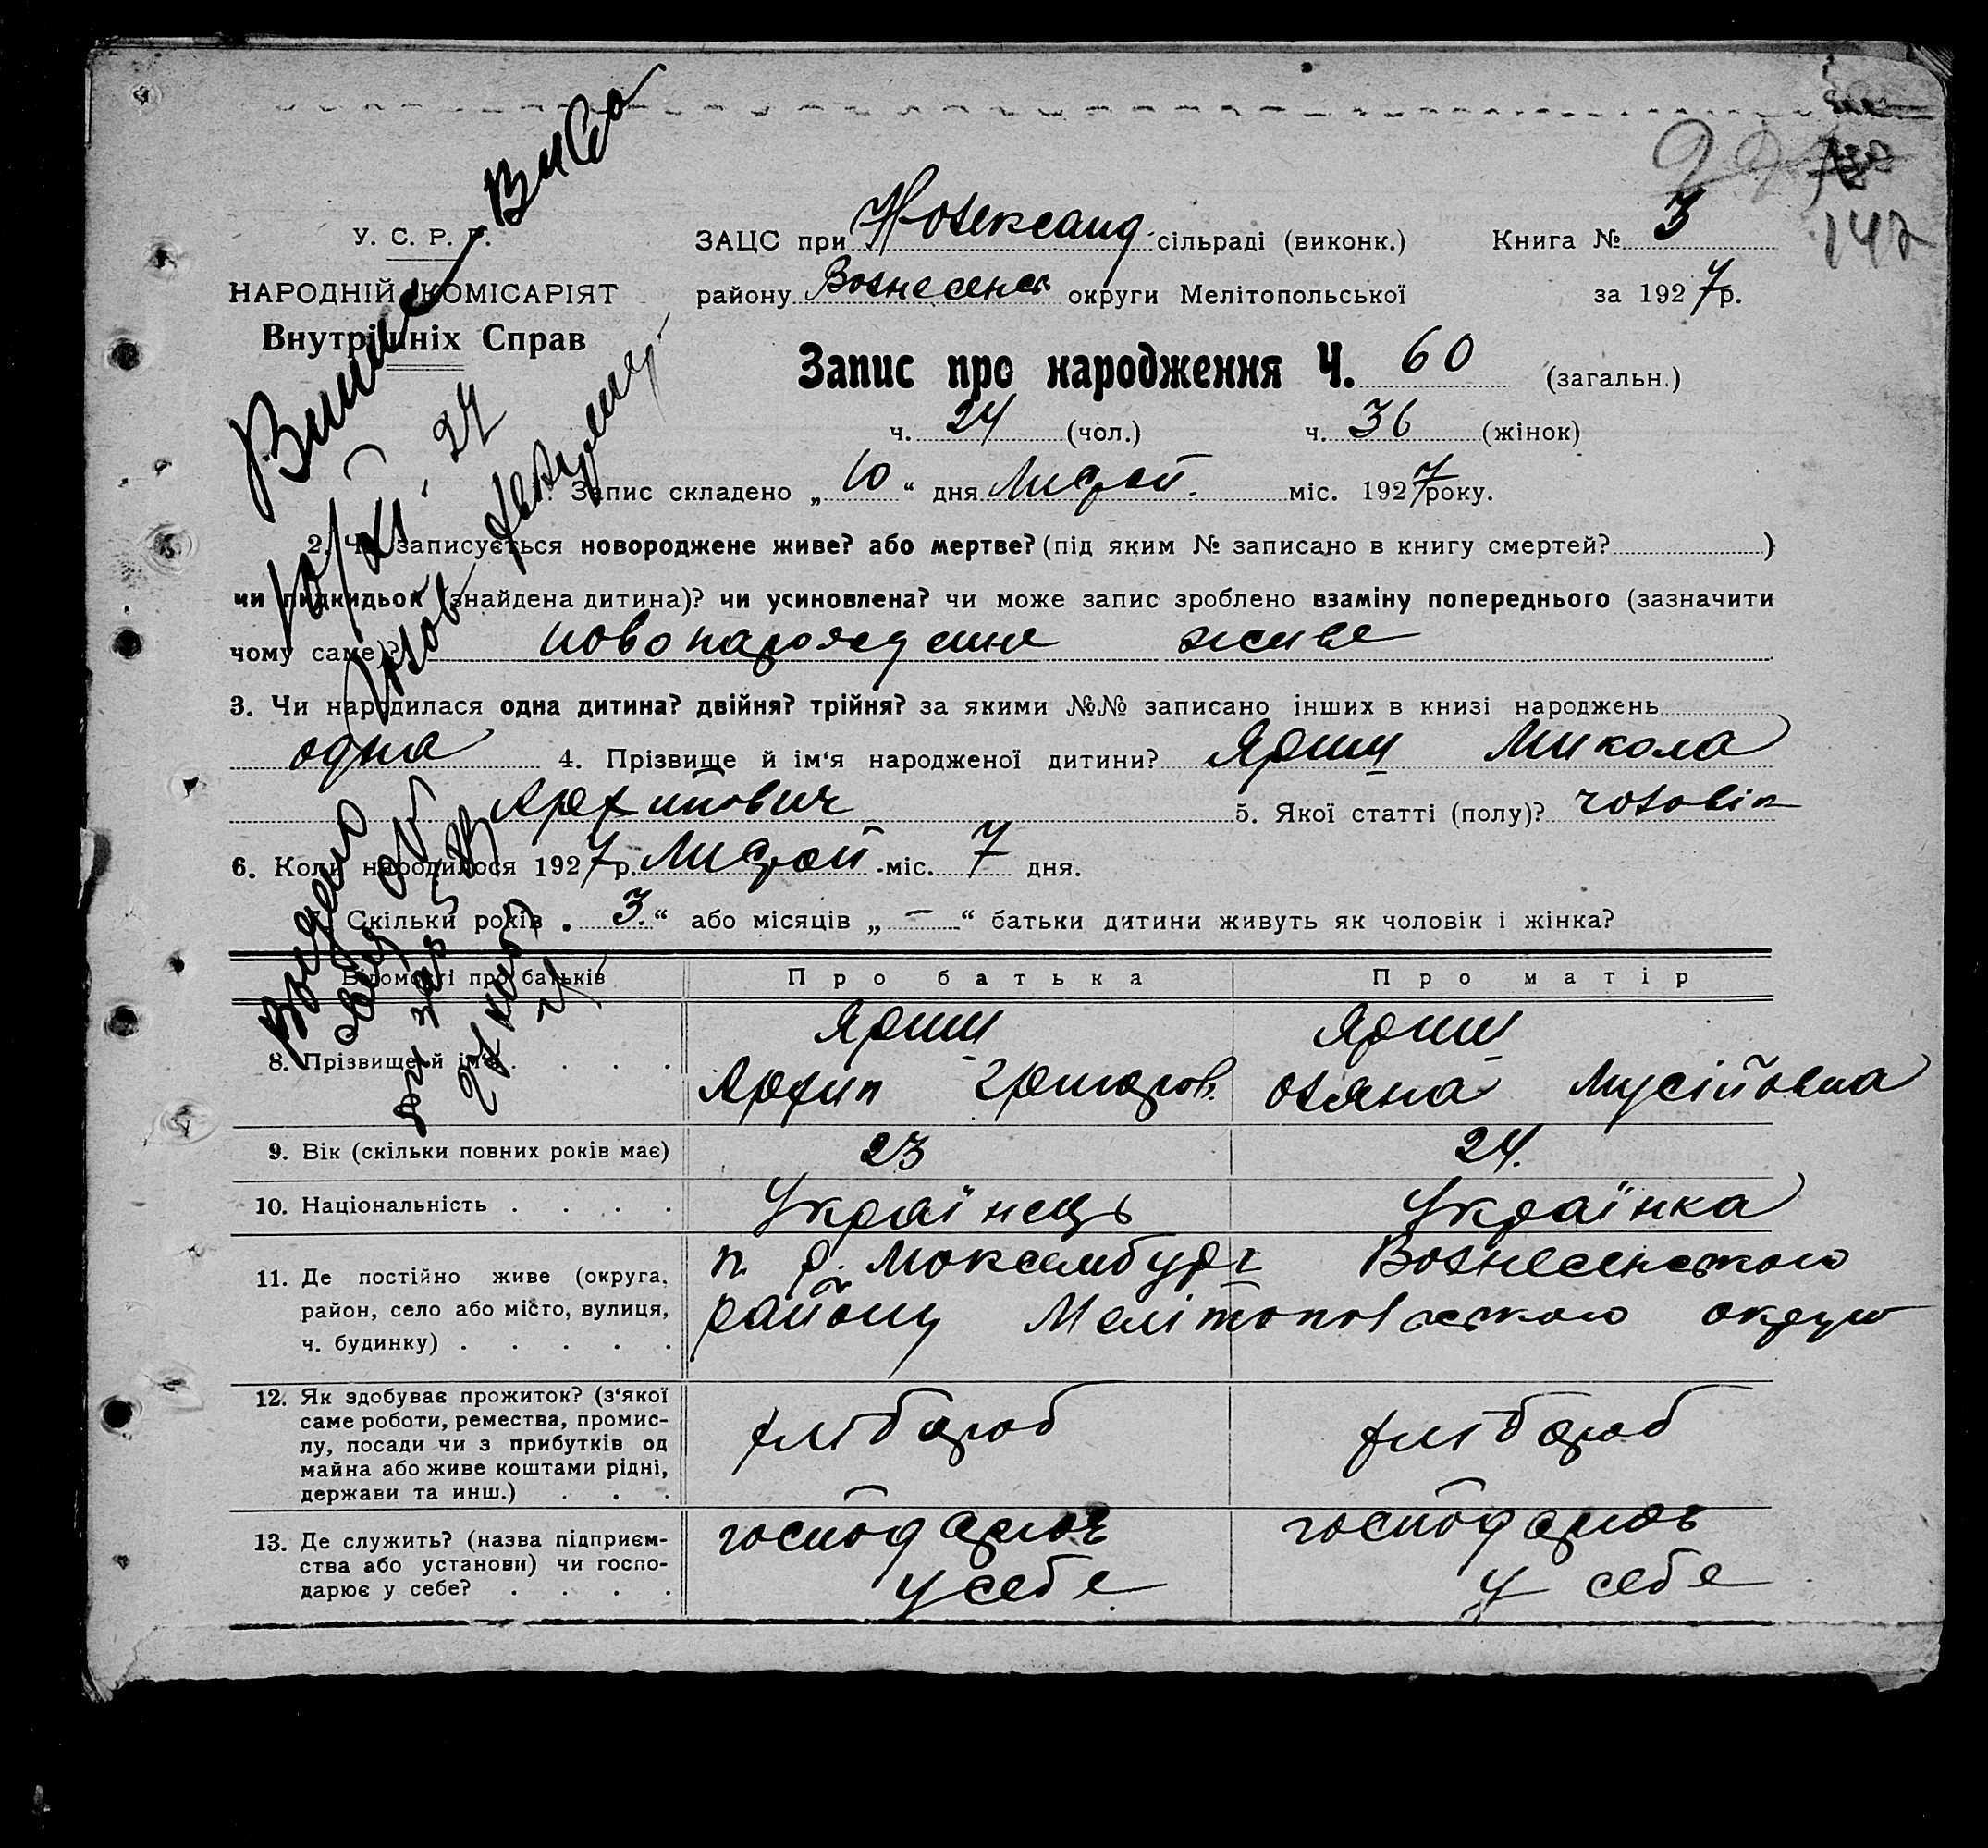 У. С. Р. Р.
НАРОДНІЙ КОМІСАРІЯТ
Внутрішніх Справ
ЗАЦС при Новоександ. сільраді (виконк.) Книга № 3
147
району Вознесенсь округи Мелітопольської за 1927 р.
Запис про народження Ч. 60 (загальн.)
ч. 24 (чол.) ч. 36 (жінок)
Запис складено „ 10 “ дня Листоп. міс. 1927 року.
2. Чи записується новороджене живе? або мертве? (під яким № записано в книгу смертей? )
чи пидкидьок (знайдена дитина)? чи усиновлена? чи може запис зроблено взаміну попереднього (зазначити
чому саме)? новонарождение живе
3. Чи народилася одна дитина? двійня? трійня? за якими №№ записано інших в книзі народжень
одна 4. Прізвище й ім‘я народженої дитини? Яриш Микола
Архипович 5. Якої статті (полу)? чоловік
6. Коли народилося 1927 р. Листоп міс. 7 дня.
Скільки років „ 3 “ або місяців „ — “ батьки дитини живуть як чоловік і жінка?
Відомості про батьків Про батька Про матір
Яриш Яриш
8. Прізвище й ім‘я Архип Григоров. Оляна Мусійовна
9. Вік (скільки повних років має) 23 24.
10. Національність Українець Українка
11. Де постійно живе (округа, район, село або місто, вулиця, ч. будинку)
Вознесенського
району Мелітопольського округи
12. Як здобуває прожиток? (з‘якої саме роботи, ремества, промислу, посади чи з прибутків од майна або живе коштами рідні, держави та инш.) хлібороб хлібороб
13. Де служить? (назва підприємства або установи) чи господарює у себе? господарює господарює
у себе у себе
10/XI. 27